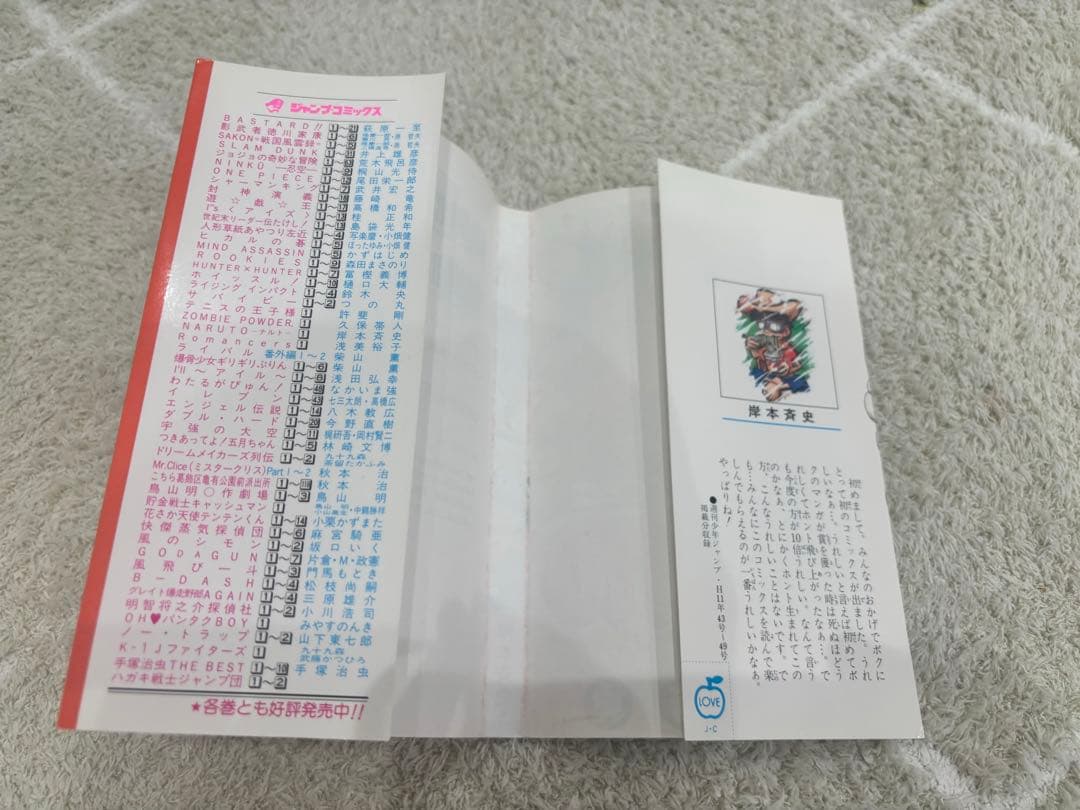 ジャンプ・コミックス
BASTARD!! 1〜21 萩原一至
影武者徳川家康 1〜6
SAKON-戦国風雲録-
SLAM DUNK 井上雄彦
ジョジョの奇妙な冒険 荒木飛呂彦
NINKŪ —忍空— 桐山光侍
ONE PIECE 尾田栄一郎
シャーマンキング 武井宏之
封神演義 藤崎竜
遊☆戯☆王 高橋和希
I"s〈アイズ〉 桂正和
世紀末リーダー伝たけし! 島袋光年
人形草紙あやつり左近 写楽麿・小畑健
ヒカルの碁 ほったゆみ・小畑健
MIND ASSASSIN かずはじめ
ROOKIES 森田まさのり
HUNTER×HUNTER 冨樫義博
ホイッスル! 樋口大輔
ライジング インパクト 鈴木央
サバイビー つの丸
テニスの王子様 1 許斐剛
ZOMBIE POWDER. 1 久保帯人
NARUTO—ナルト— 1 岸本斉史
Romancers 1 浅美裕子
ライバル 番外編1〜2 柴山薫
爆骨少女ギリギリぷりん 柴山薫
I'll 〜アイル〜 浅田弘幸
わたるがぴゅん! なかいま強
イレブン 七三太朗・高橋広
エンジェル伝説 八木教広
ダブル・ハード 今野直樹
宇強の大空 梶研吾・岡村賢二
つきあってよ!五月ちゃん 林崎文博
ドリームメイカーズ列伝 九十九森
Mr.Clice(ミスタークリス) Part1〜2 秋本治
こちら葛飾区亀有公園前派出所 秋本治
鳥山明○作劇場 1〜3 鳥山明
貯金戦士キャッシュマン 1
花さか天使テンテンくん 1〜14 小栗かずまた
快傑蒸気探偵団 1〜6 麻宮騎亜
風のシモン 1〜2 坂口いく
GODAGUN 1〜7 片倉・M・政憲
風飛び一斗 1〜3 門馬もとき
B-DASH 1〜4 松枝尚嗣
グレイト爆走野郎AGAIN 1〜4 三原雄介
明智将之介探偵社 1〜2 小川浩司
OH♥バンタクBOY 1 みやすのんき
ノー・トラップ 1〜2 山下東七郎
K-1Jファイターズ 1 九十九森 武藤かつひろ
手塚治虫THE BEST 手塚治虫
ハガキ戦士ジャンプ団 1〜2
★各巻とも好評発売中!!
岸本斉史
初めまして、みんなのおかげでボクに
とって初のコミックスが出ました。うれ
しいなぁ…。うれしいと言えば初めてボ
クのマンガが賞を獲った時は死ぬほどう
れしくてホント飛び上がったなぁ…。で
も今度の方が10倍うれしい。なんて言う
のかなぁ、とにかくホント生まれてこの
方…こんなうれしいことはないです。で
も…みんなにこのコミックスを読んで楽
しんでもらえるのが一番うれしいかなぁ。
やっぱりね!
●週刊少年ジャンプ・H11年43号〜49号
掲載分収録
LOVE
J・C